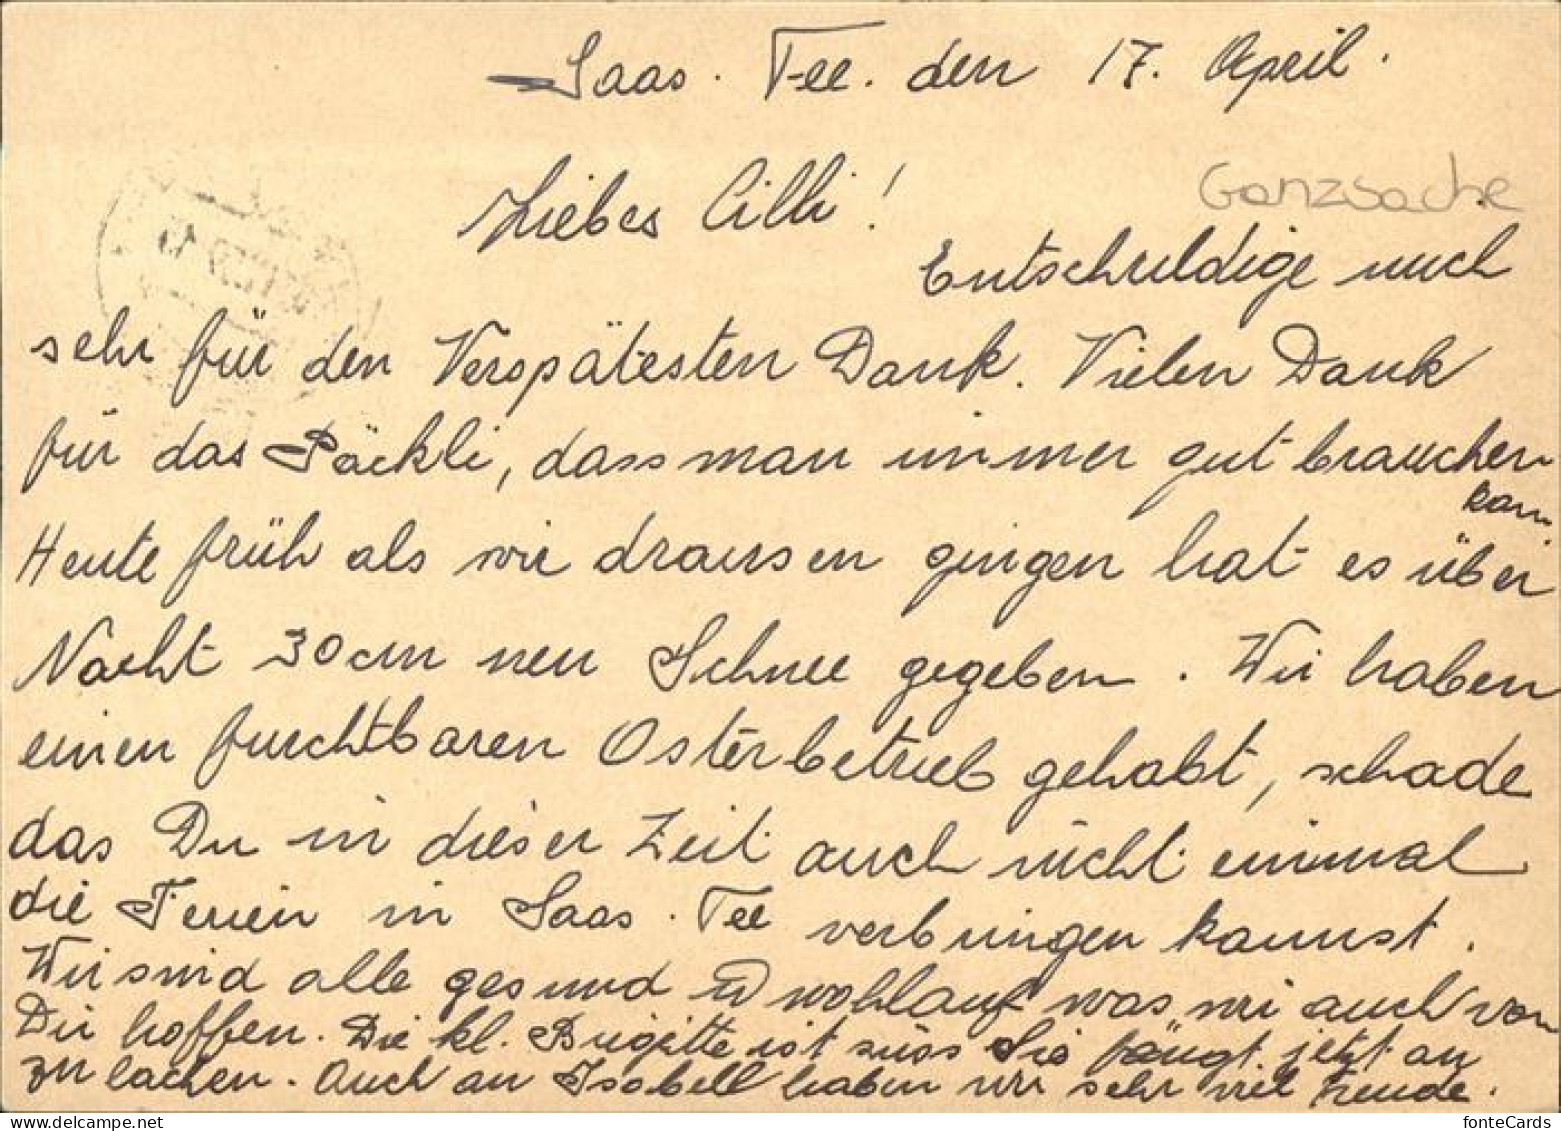 Saas. Fee. den 17. April.
Liebes Cilli!
Ganzsache
Entschuldige mich
sehr für den Verspätesten Dank. Vielen Dank
für das Päckli, dass man immer gut brauchen
kann.
Heute früh als wir draussen gingen hat es über
Nacht 30cm neu Schnee gegeben. Wir haben
einen furchtbaren Osterbetrieb gehabt, schade
das Du in dieser Zeit auch nicht einmal
die Ferien in Saas. Fee verbringen kannst.
Wir sind alle gesund u wohlauf was wir auch von
Dir hoffen. Die kl. Brigitte ist süss Sie fängt jetzt an
zu lachen. Auch an Isabell haben wir sehr viel Freude.
fonteCards